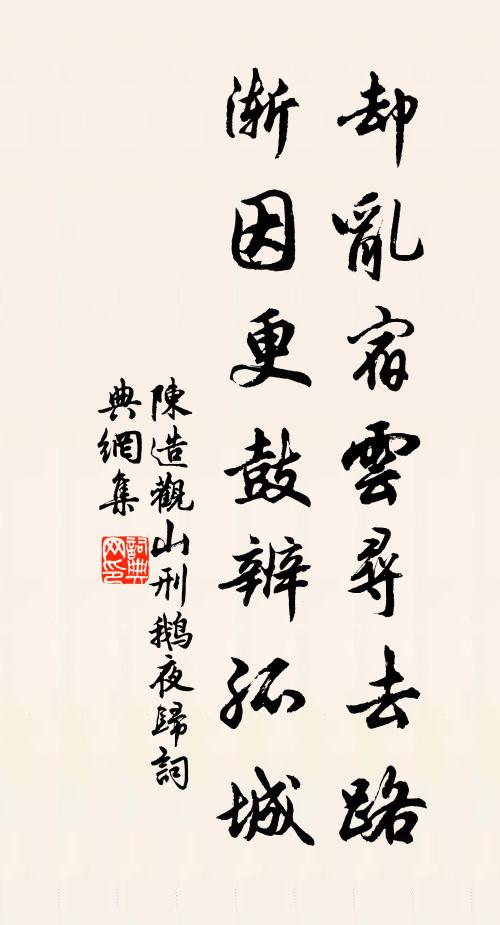 却亂宿雲尋去路
漸因更鼓辨孤城
陳造觀山刑鵝夜歸詞
典網集
詞典網印